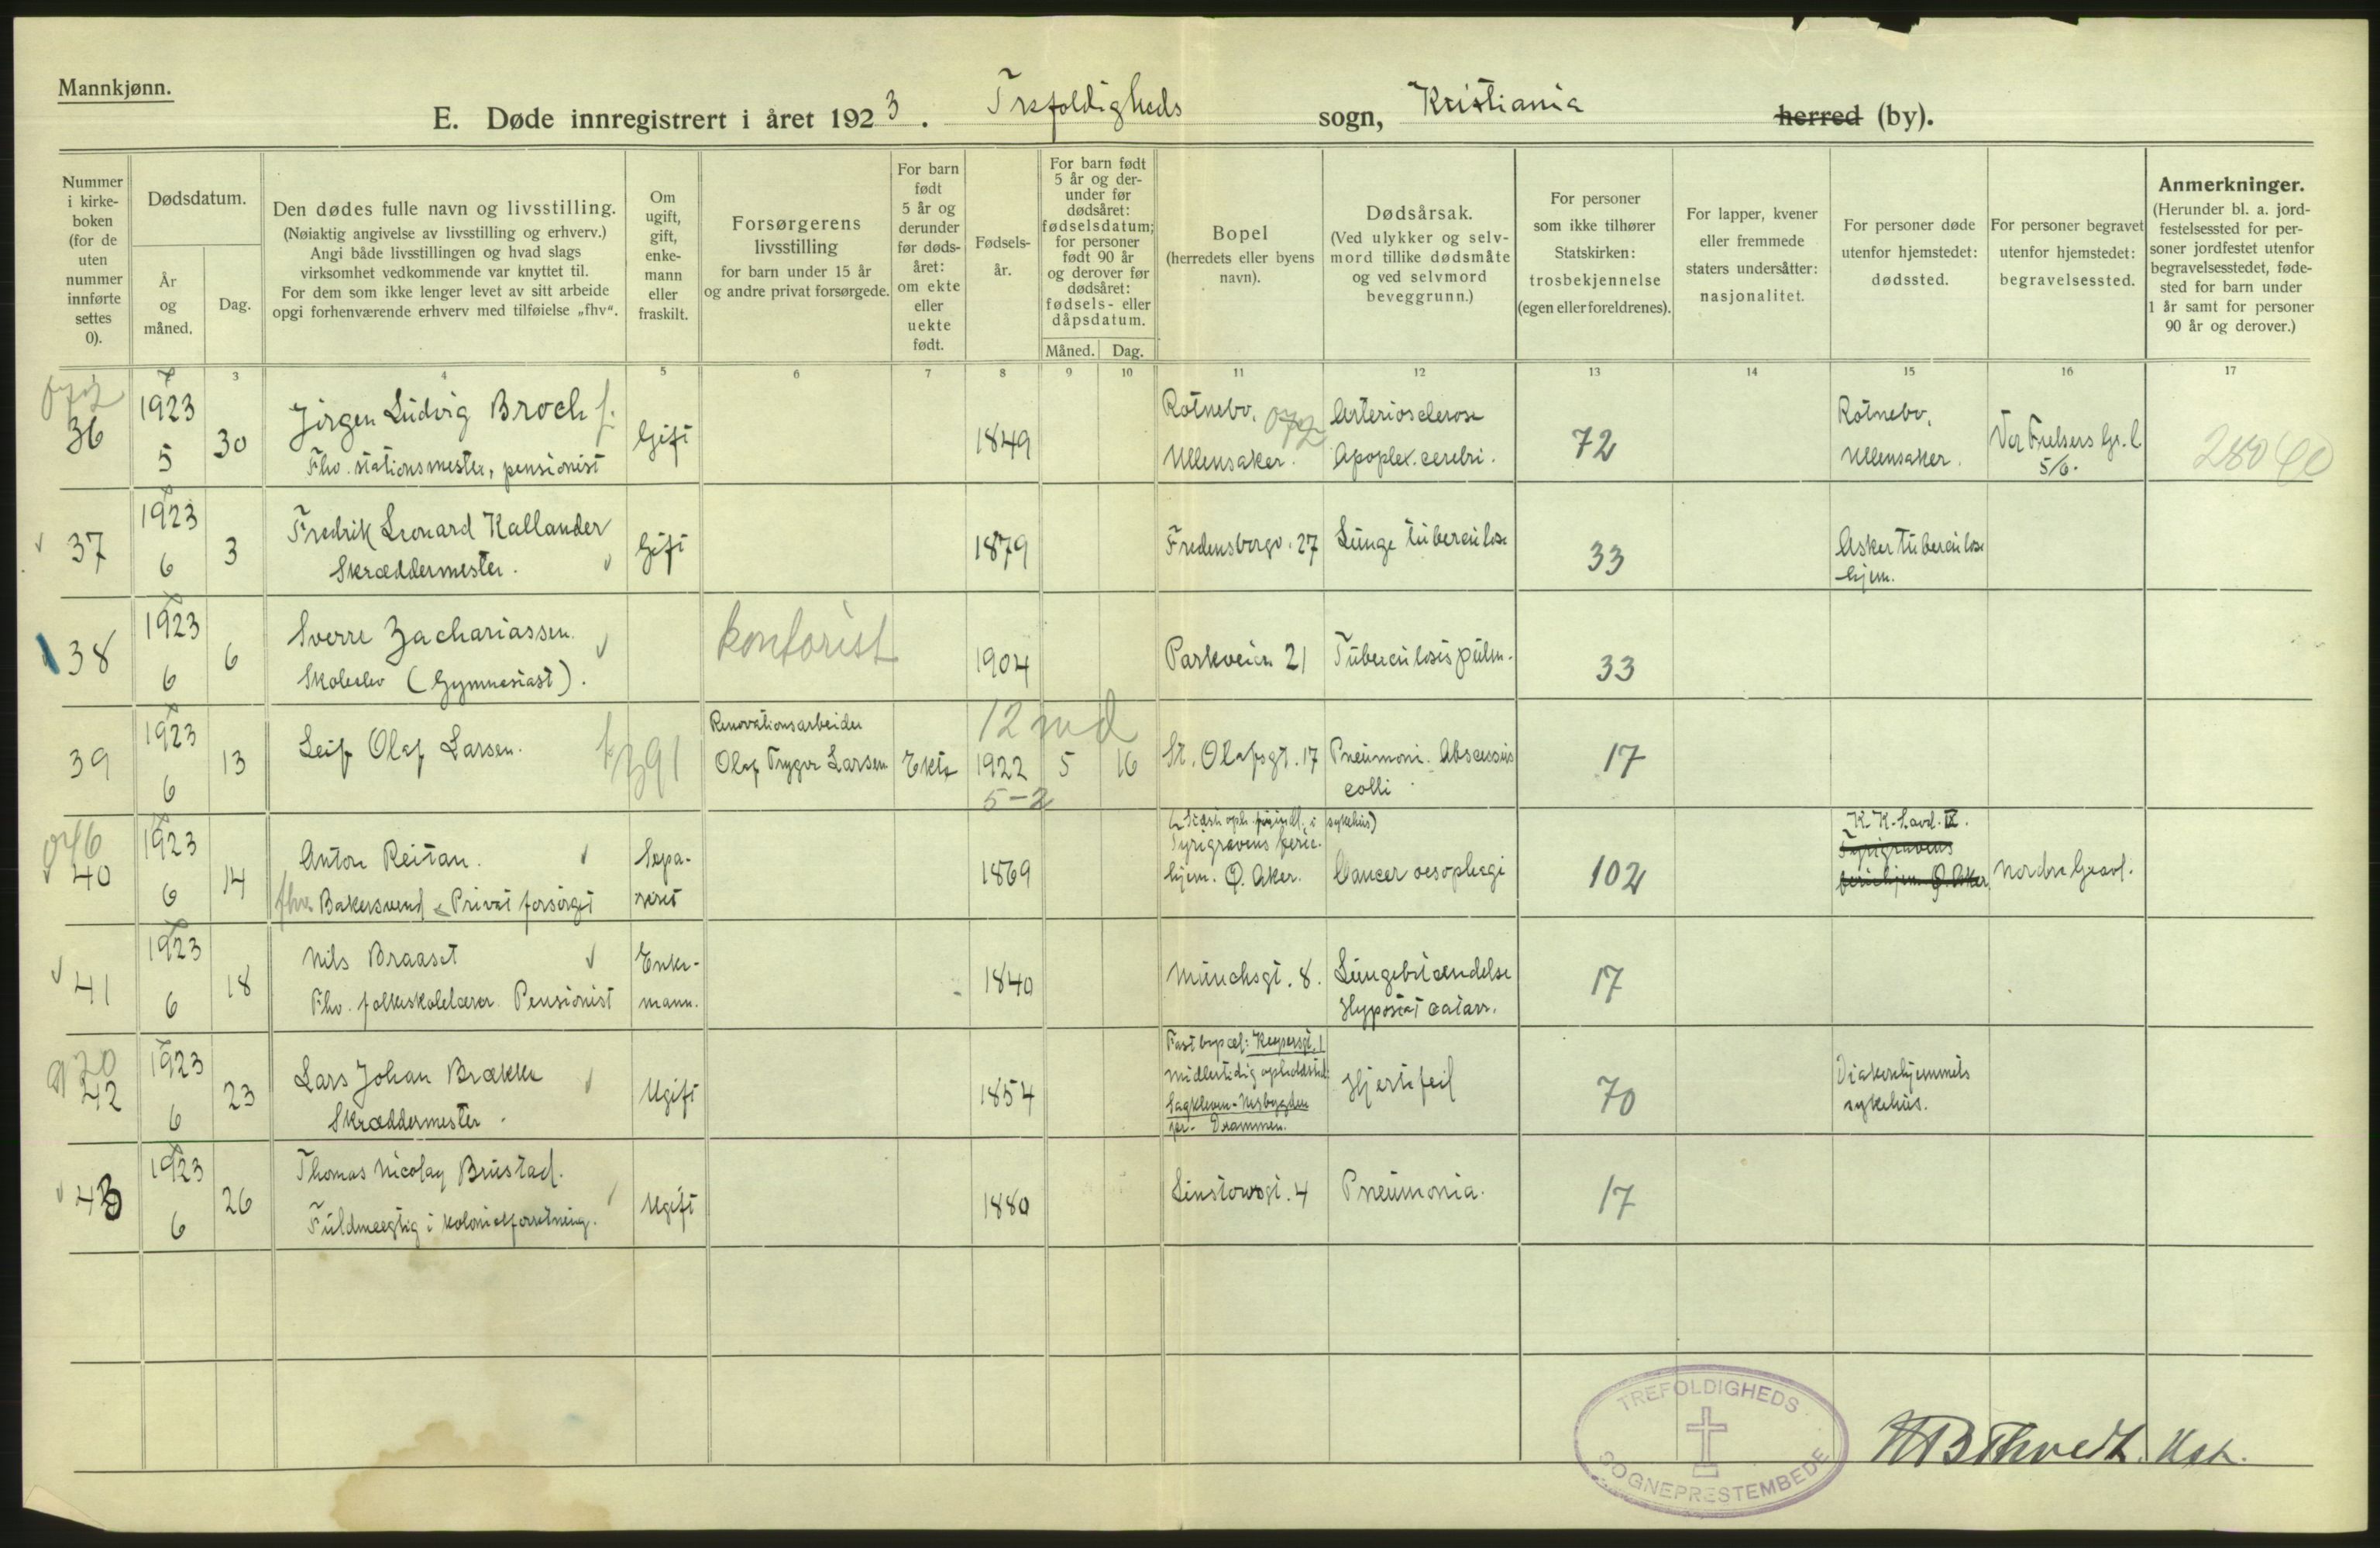 Mannkjønn.
E. Døde innregistrert i året 1923. Trefoldigheds sogn, Kristiania herred (by).
Nummer i kirke-boken (for de uten nummer innførte settes 0).
Dødsdatum.
År og måned.
Dag.
Den dødes fulle navn og livsstilling.
(Nøiaktig angivelse av livsstilling og erhverv.)
Angi både livsstillingen og hvad slags
virksomhet vedkommende var knyttet til.
For dem som ikke lenger levet av sitt arbeide
opgi forhenværende erhverv med tilføielse „fhv“.
Om ugift, gift, enke-mann eller fraskilt.
Forsørgerens livsstilling
for barn under 15 år
og andre privat forsørgede.
For barn født 5 år og derunder før døds-året: om ekte eller uekte født.
Fødsels-år.
For barn født 5 år og der-under før dødsåret: fødselsdatum; for personer født 90 år og derover før dødsåret: fødsels- eller dåpsdatum.
Måned. Dag.
Bopel
(herredets eller byens navn).
Dødsårsak.
(Ved ulykker og selv-mord tillike dødsmåte og ved selvmord beveggrunn.)
For personer som ikke tilhører Statskirken: trosbekjennelse (egen eller foreldrenes).
For lapper, kvener eller fremmede staters undersåtter: nasjonalitet.
For personer døde utenfor hjemstedet: dødssted.
For personer begravet utenfor hjemstedet: begravelsessted.
Anmerkninger.
(Herunder bl. a. jord-festelsessted for per-soner jordfestet utenfor begravelsesstedet, føde-sted for barn under 1 år samt for personer 90 år og derover.)
3 4 5 6 7 8 9 10 11 12 13 14 15 16 17
072
36 1923 5 30 Jörgen Ludvig Broch f. Gift 1849 Rotnebo, 072 Arteriosclerose 72 Rotnebo, Vor Frelsers Gr.l. 28040
Fhv. stationsmester, pensionist Ullensaker. Apoplex. cerebri. Ullensaker. 5/6.
37 1923 6 3 Fredrik Leonard Kallander Gift 1879 Fredensborgv. 27 Lunge tuberculose 33 Asker tuberculose
Skræddermester. hjem.
38 1923 6 6 Sverre Zachariassen. kontorist 1904 Parkveien 21 Tuberculosis pulm. 33
Skoleelev (Gymnasiast).
39 1923 6 13 Leif Olaf Larsen. 391 Renovationsarbeider 12 md
Olaf Trygve Larsen Ekte 1922 5 16 St. Olafsgt. 17 Pneumoni. Abscessus 17
5-2 colli
046
40 1923 6 14 Anton Reitan. Sepa-reret 1869 Tyrigravens ferie. sykehus) K. K. S. avd. IX.
fhv. Bakersvend Privat forsörget hjem. Ø. Aker. Cancer oesophagi 102 Tyrigravens
feriehjem Ø. Aker Nordre Gravl.
41 1923 6 18 Nils Braaset Enke-mann. 1840 Munchsgt. 8. Lungebetændelse 17
Fhv. folkeskolelærer Pensionist Hypostat catarr.
920
42 1923 6 23 Lars Johan Brække Ugift 1854 Fast bopæl: Keysersgt. 1 Hjertefeil 70 Diakonhjemmets
Skræddermester midlertidig opholdsted: sykehus.
pr. Drammen.
43 1923 6 26 Thomas Nicolay Brustad. Ugift 1880 Linstowsgt. 4 Pneumonia. 17
Fuldmægtig i kolonialforretning.
TREFOLDIGHEDS
SOGNEPRESTEMBEDE